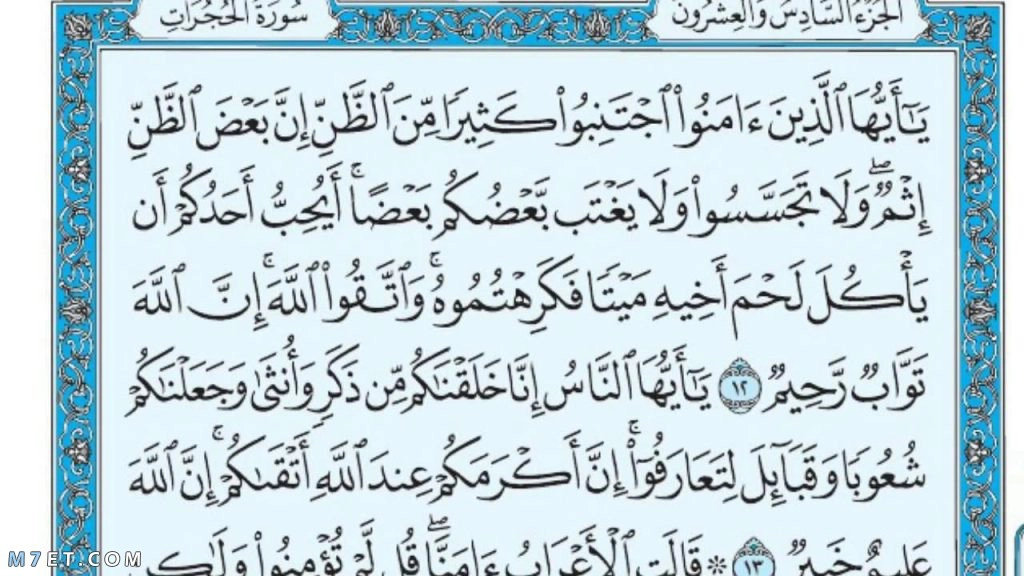 الجزء السادس والعشرون
سورة الحجرات
يَٰٓأَيُّهَا ٱلَّذِينَ ءَامَنُوا۟ ٱجْتَنِبُوا۟ كَثِيرًا مِّنَ ٱلظَّنِّ إِنَّ بَعْضَ ٱلظَّنِّ
إِثْمٌ ۖ وَلَا تَجَسَّسُوا۟ وَلَا يَغْتَب بَّعْضُكُم بَعْضًا ۚ أَيُحِبُّ أَحَدُكُمْ أَن
يَأْكُلَ لَحْمَ أَخِيهِ مَيْتًا فَكَرِهْتُمُوهُ ۚ وَٱتَّقُوا۟ ٱللَّهَ ۚ إِنَّ ٱللَّهَ
تَوَّابٌ رَّحِيمٌ ١٢ يَٰٓأَيُّهَا ٱلنَّاسُ إِنَّا خَلَقْنَٰكُم مِّن ذَكَرٍ وَأُنثَىٰ وَجَعَلْنَٰكُمْ
شُعُوبًا وَقَبَآئِلَ لِتَعَارَفُوٓا۟ ۚ إِنَّ أَكْرَمَكُمْ عِندَ ٱللَّهِ أَتْقَىٰكُمْ ۚ إِنَّ ٱللَّهَ
عَلِيمٌ خَبِيرٌ ١٣ ۞ قَالَتِ ٱلْأَعْرَابُ ءَامَنَّا ۖ قُل لَّمْ تُؤْمِنُوا۟ وَلَٰكِن
M7ET.COM